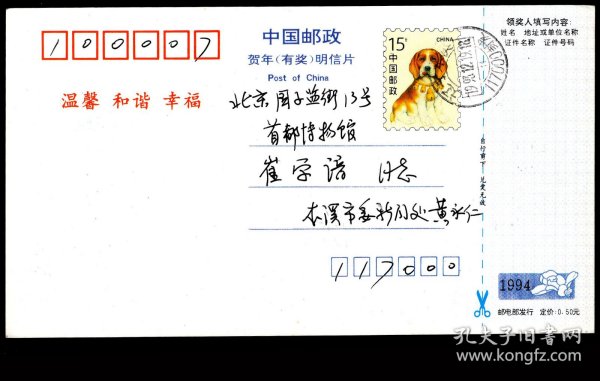 100007
中国邮政
贺年(有奖)明信片
Post of China
15分
CHINA
中国邮政
领奖人填写内容:
姓名 地址或单位名称
证件名称 证件号码
温馨 和谐 幸福
北京国子监街13号
首都博物馆
崔学谙 同志
本溪市委新闻处黄永仁
117000
自行剪下 兑奖无效
1994
邮电部发行 定价:0.50元
孔夫子旧书网
www.kongfz.com